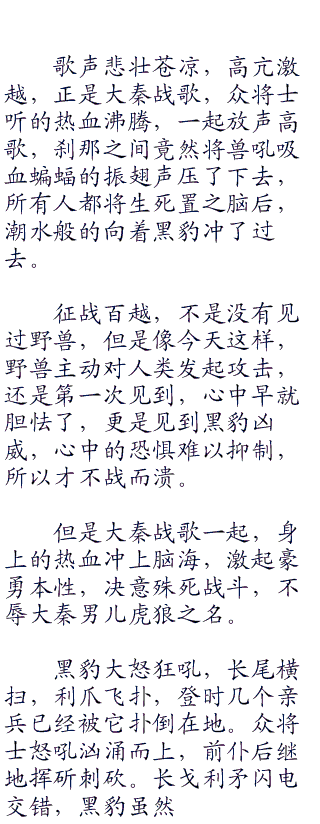 歌声悲壮苍凉，高亢激
越，正是大秦战歌，众将士
听的热血沸腾，一起放声高
歌，刹那之间竟然将兽吼吸
血蝙蝠的振翅声压了下去，
所有人都将生死置之脑后，
潮水般的向着黑豹冲了过
去。
征战百越，不是没有见
过野兽，但是像今天这样，
野兽主动对人类发起攻击，
还是第一次见到，心中早就
胆怯了，更是见到黑豹凶
威，心中的恐惧难以抑制，
所以才不战而溃。
但是大秦战歌一起，身
上的热血冲上脑海，激起豪
勇本性，决意殊死战斗，不
辱大秦男儿虎狼之名。
黑豹大怒狂吼，长尾横
扫，利爪飞扑，登时几个亲
兵已经被它扑倒在地。众将
士怒吼汹涌而上，前仆后继
地挥斫刺砍。长戈利矛闪电
交错，黑豹虽然